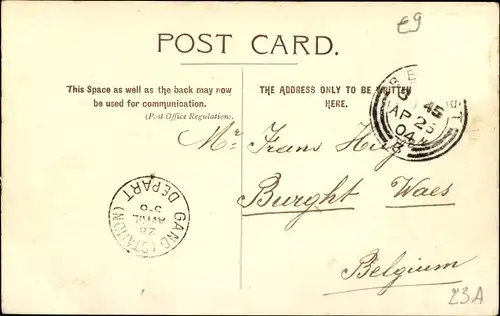 €9
POST CARD.
This Space as well as the back may now
be used for communication.
(Post Office Regulation).
THE ADDRESS ONLY TO BE WRITTEN
HERE.
BELFAST
45
AP 25
04
Mr Frans
Burght Waes
Belgium
GAND (STATION)
DEPART
26
AVRIL
5-6
23A